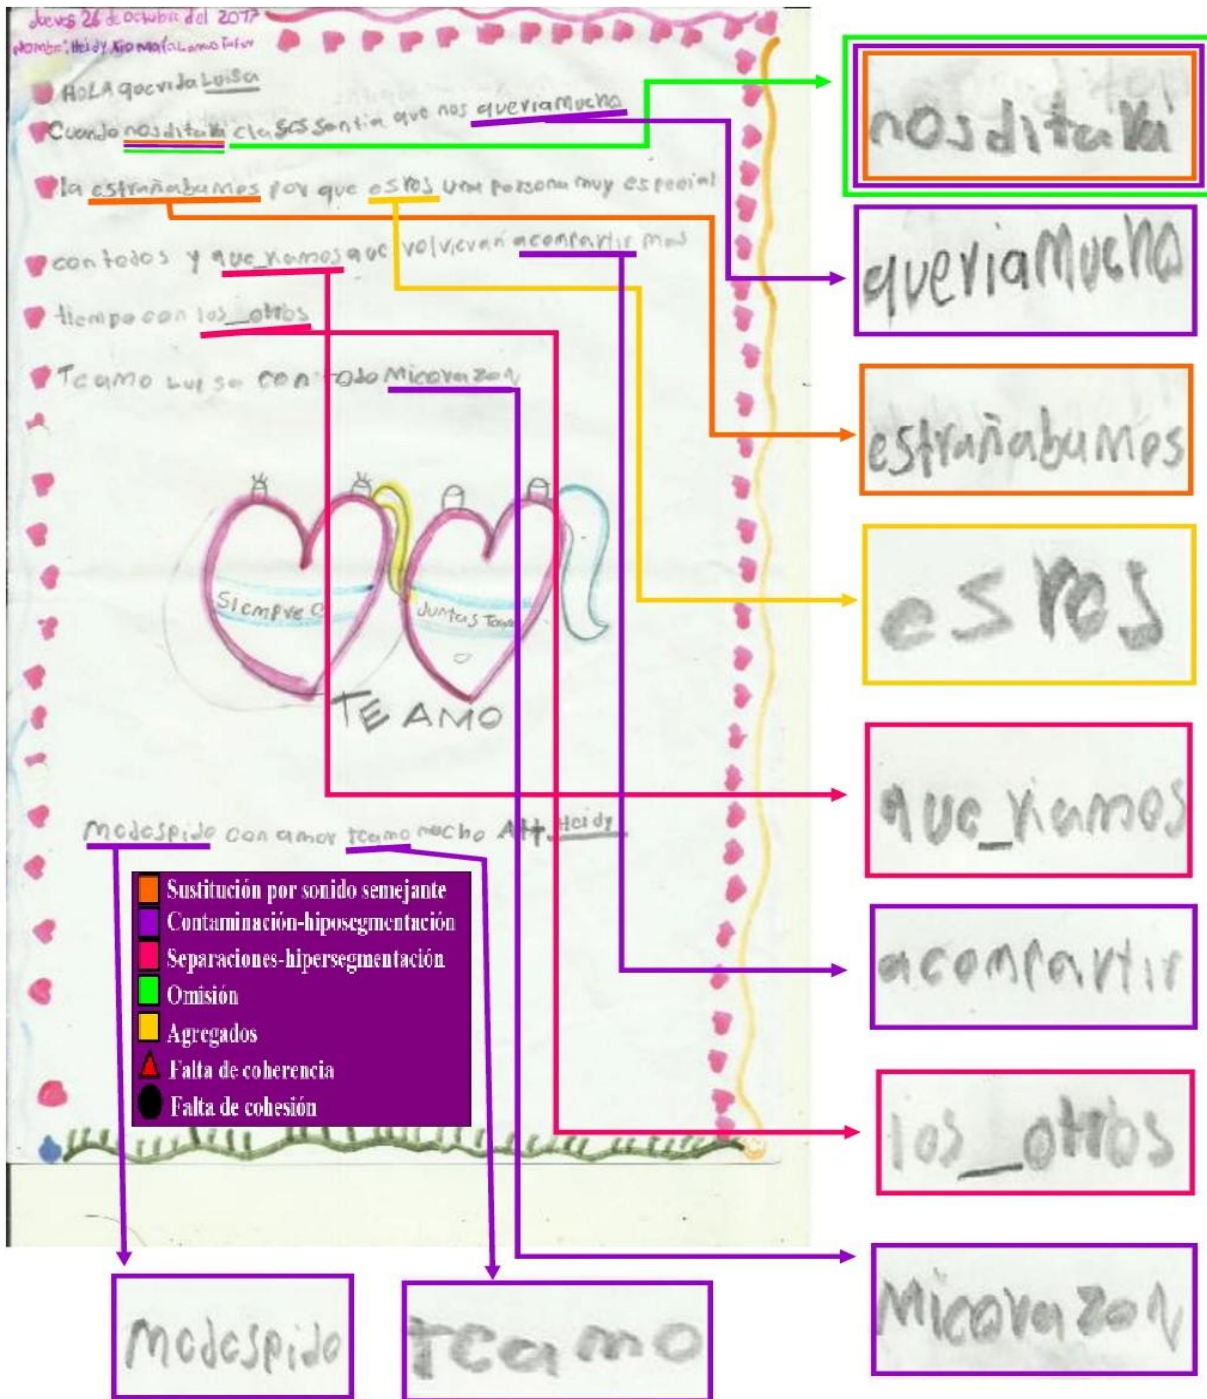 Jueves 26 de octubre del 2017
Nombre: Heidy
HOLA querida Luisa
Cuando nosditava clases sentia que nos queriaMucho
la estrañabamos por que esros una persona muy especial
con todos y que_riamos que volvieran acompartir mas
tiempo con los_otros
Teamo Luisa con todo Micorazon
Siempre
Juntas
TE AMO
Medespido con amor teamo mucho Att. Heidy
Sustitución por sonido semejante
Contaminación-hiposegmentación
Separaciones-hipersegmentación
Omisión
Agregados
Falta de coherencia
Falta de cohesión
nosditava
queriaMucho
estrañabamos
esros
que_riamos
acompartir
los_otros
Micorazon
Medespido
teamo